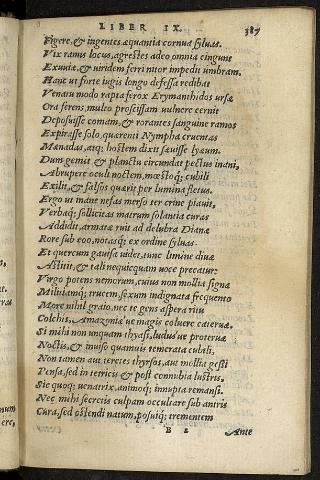 LIBER IX. 387
Figere, & ingentes æquantia cornua syluas.
Vix ramis locus, agrestes adeo omnia cingunt
Exuuiæ, & uiridem ferri nitor impedit umbram.
Hanc ut forte iugis longo defessa redibat
Venatu modo rapta ferox Erymanthidos ursæ
Ora ferens, multo proscissam uulnere cernit
Deposuisse comam, & rorantes sanguine ramos
Expirasse solo, quærenti Nympha cruentas
Mænadas, atq; hostem dixit sæuisse lyæum.
Dum gemit & planctu circundat pectus inani,
Abrupere oculi noctem, mæstoq; cubili
Exilit, & falsos quærit per lumina fletus.
Ergo ut mane nefas merso ter crine piauit,
Verbaq; sollicitas matrum solantia curas
Addidit, armatæ ruit ad delubra Dianæ
Rore sub eoo, notasq; ex ordine syluas
Et quercum gauisa uidet, tunc limine diuæ
Astitit, & tali nequicquam uoce precatur:
Virgo potens nemorum, cuius non mollia signa
Militiamq; trucem, sexum indignata frequento
More nihil graio, nec te gens aspera ritu
Colchis, Amazoniæ ue magis coluere cateruæ,
Si mihi non unquam thyasi, ludus ue proteruæ
Noctis, & inuiso quamuis temerata cubili,
Non tamen aut teretes thyrsos, aut mollia gessi
Pensa, sed in tetricis & post connubia lustris,
Sic quoq; uenatrix, animoq; innupta remansi.
Nec mihi secretis culpam occultare sub antris
Cura, sed ostendi natum, posuiq; trementem
B 2 Ante